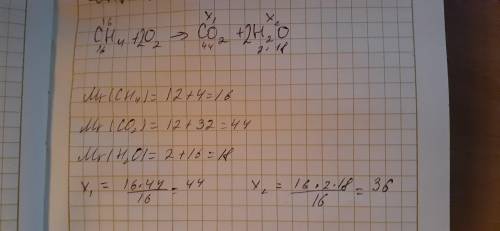 16 x₁ x₂
CH₄ + 2O₂ → CO₂ + 2H₂O
16 44 2·18
Mr(CH₄) = 12+4=16
Mr(CO₂) = 12+32=44
Mr(H₂O) = 2+16=18
x₁ = 16·44/16 = 44 x₂ = 16·2·18/16 = 36